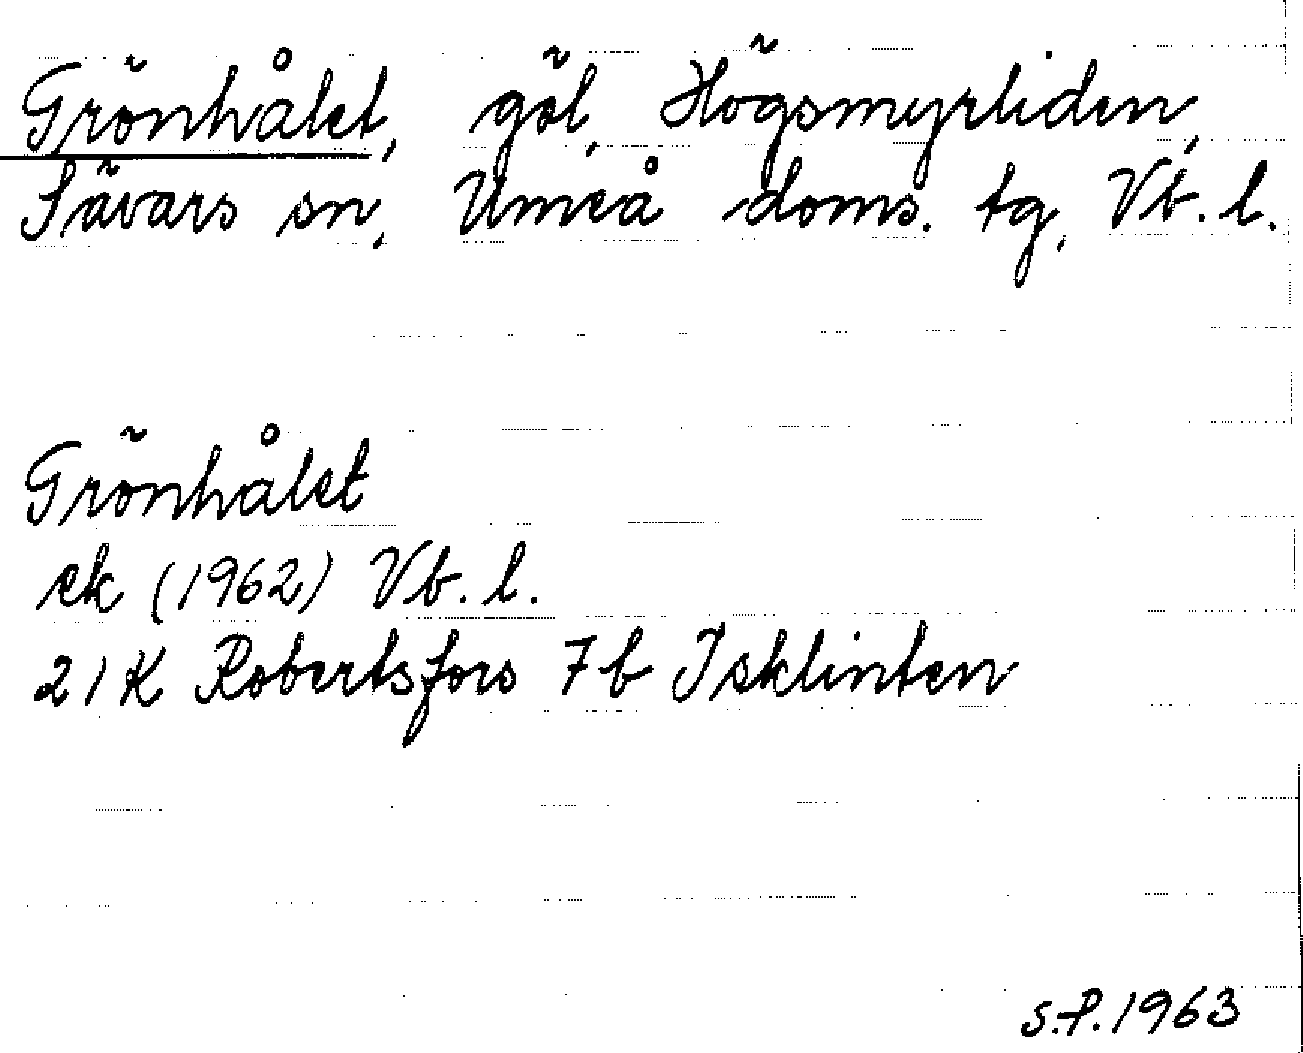 Grönhålet, göl, Högsmyrliden,
Sävars sn, Umeå doms. tg, Vb. l.
Grönhålet
ek (1962) Vb. l.
21K Robertsfors 7b Isklinten
S.P. 1963